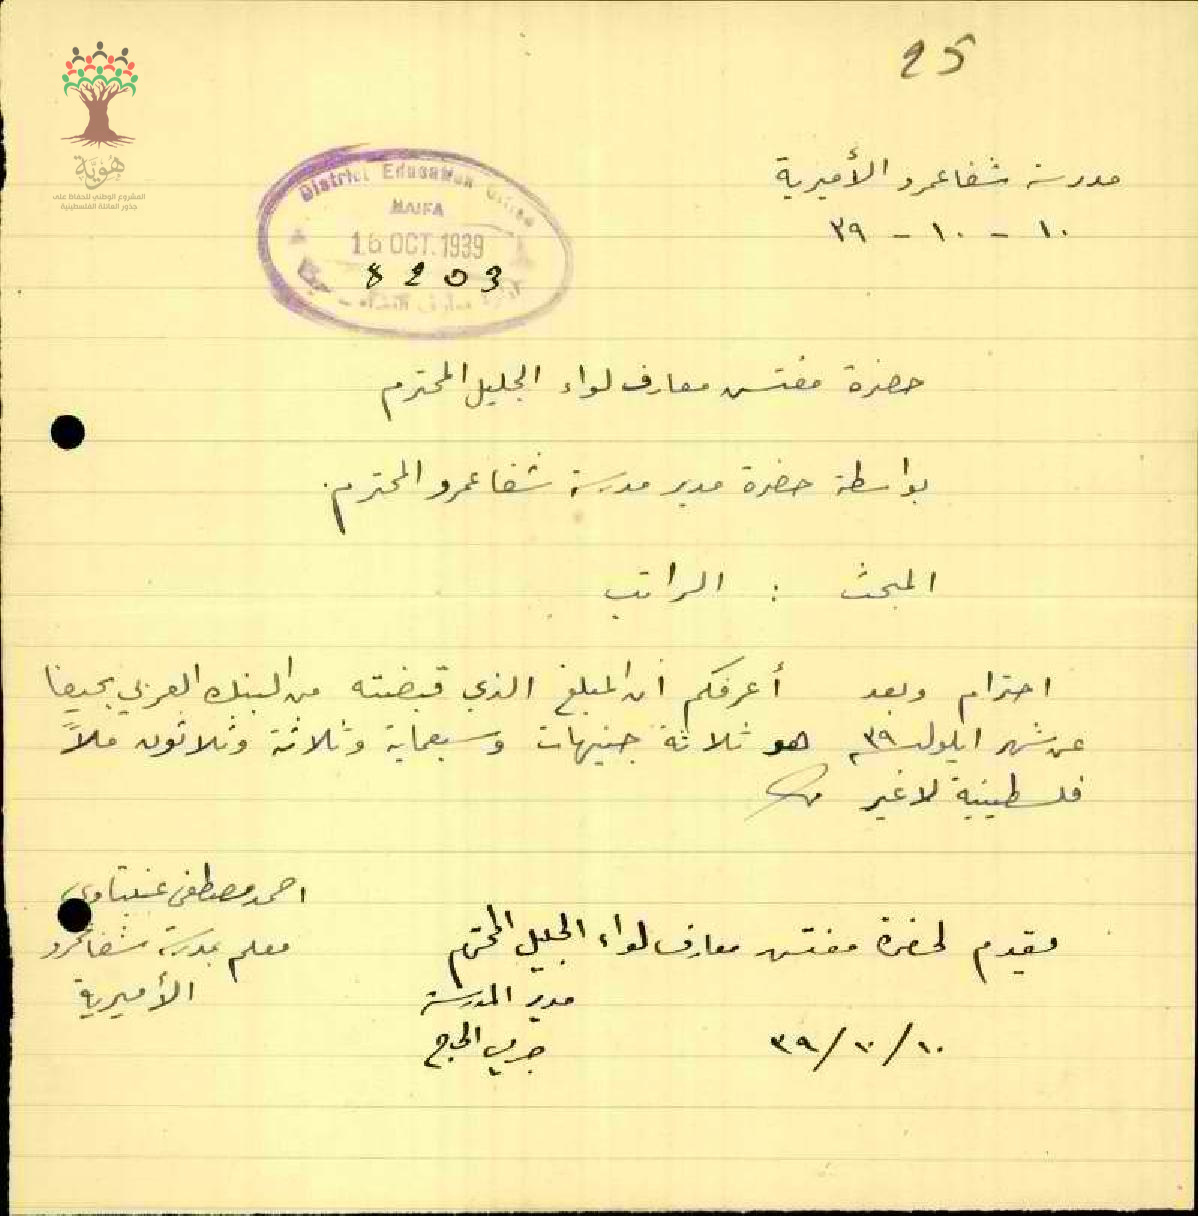 25
هُوِيَّة
المشروع الوطني للحفاظ على
جذور العائلة الفلسطينية
District Education Office
HAIFA
16 OCT. 1939
8203
حيفا
مدرسة شفاعمرو الأميرية
١٠ - ١٠ - ٣٩
حضرة مفتش معارف لواء الجليل المحترم
بواسطة حضرة مدير مدرسة شفاعمرو المحترم.
المبحث : الراتب
احترام وبعد أعرفكم ان المبلغ الذي قبضته من البنك العربي بحيفا
عن شهر ايلول ٣٩ هو ثلاثة جنيهات وسبعماية وثلاثة وثلاثون ملاً
فلسطينية لا غير
احمد مصطفى عنبتاوي
معلم بمدرسة شفاعمرو
الأميرية
مقدم لحضرة مفتش معارف لواء الجليل المحترم
مدير المدرسة
١٠/١٠/٣٩